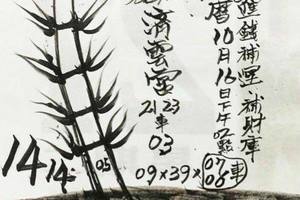 鹽錢補運、補財庫
曆10月16日下午02點
濟雲宮
21 23
車
03
14 14 05
09×39×07 08 車